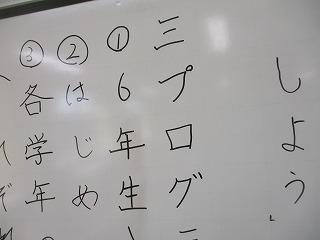 しよう
三プログラ
①6年生
②はじめ
③各学年